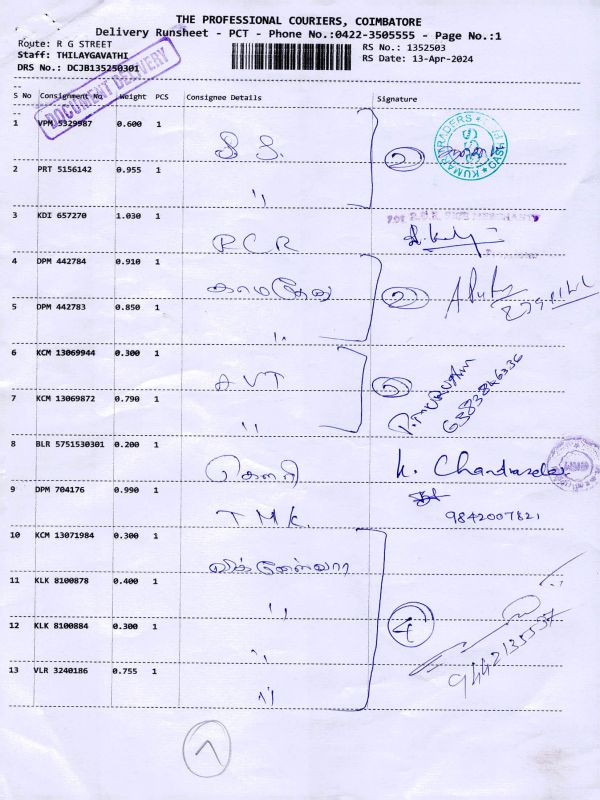 THE PROFESSIONAL COURIERS, COIMBATORE
Delivery Runsheet - PCT - Phone No.:0422-3505555 - Page No.:1
Route: R G STREET
RS No.: 1352503
Staff: THILAYGAVATHI
RS Date: 13-Apr-2024
DRS No.: DCJB135250301
DOCUMENT DELIVERY
S No Consignment No Weight PCS Consignee Details Signature
1 VPM 5329987 0.600 1 S. S. 2
KUMAR TRADERS
2 PRT 5156142 0.955 1 ''
3 KDI 657270 1.030 1 R C R
4 DPM 442784 0.910 1 காமதேனு 2
5 DPM 442783 0.850 1 ''
6 KCM 13069944 0.300 1 A V T
7 KCM 13069872 0.790 1 ''
P. MURUGAN
6383846336
8 BLR 5751530301 0.200 1 கௌரி K. Chandrasekar
9 DPM 704176 0.990 1 T M K. 9842007821
10 KCM 13071984 0.300 1 விக்னேஸ்வரா
11 KLK 8100878 0.400 1 ''
12 KLK 8100884 0.300 1 '' 4
13 VLR 3240186 0.755 1 ''